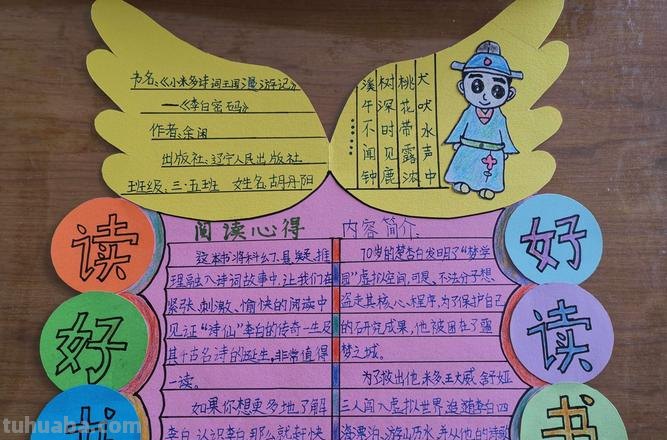 书名:《小米多诗词王国漫游记》
——《李白密码》
作者:余闲
出版社:辽宁人民出版社
班级:三·五班 姓名:胡丹阳
犬吠水声中
桃花带露浓
树深时见鹿
溪午不闻钟
……
读
好
书
阅读心得
这本书将科幻、悬疑、推
理融入诗词故事中,让我们在
紧张、刺激、愉快的阅读中
见证“诗仙”李白的传奇一生及
其千古名诗的诞生,非常值得
一读。
如果你想更多地了解
李白,认识李白,那么就赶快
内容简介:
70岁的楚李白发明了“梦学
园”虚拟空间,可是,不法分子想
盗走其核心程序,为了保护自己
的研究成果,他被困在了露
梦之城。
为了救出他,米多、王大威、舒娅
三人闯入虚拟世界,追随李白四
海漂泊、游山历水,并从他的诗歌
好
读
书
tuhuaba.com